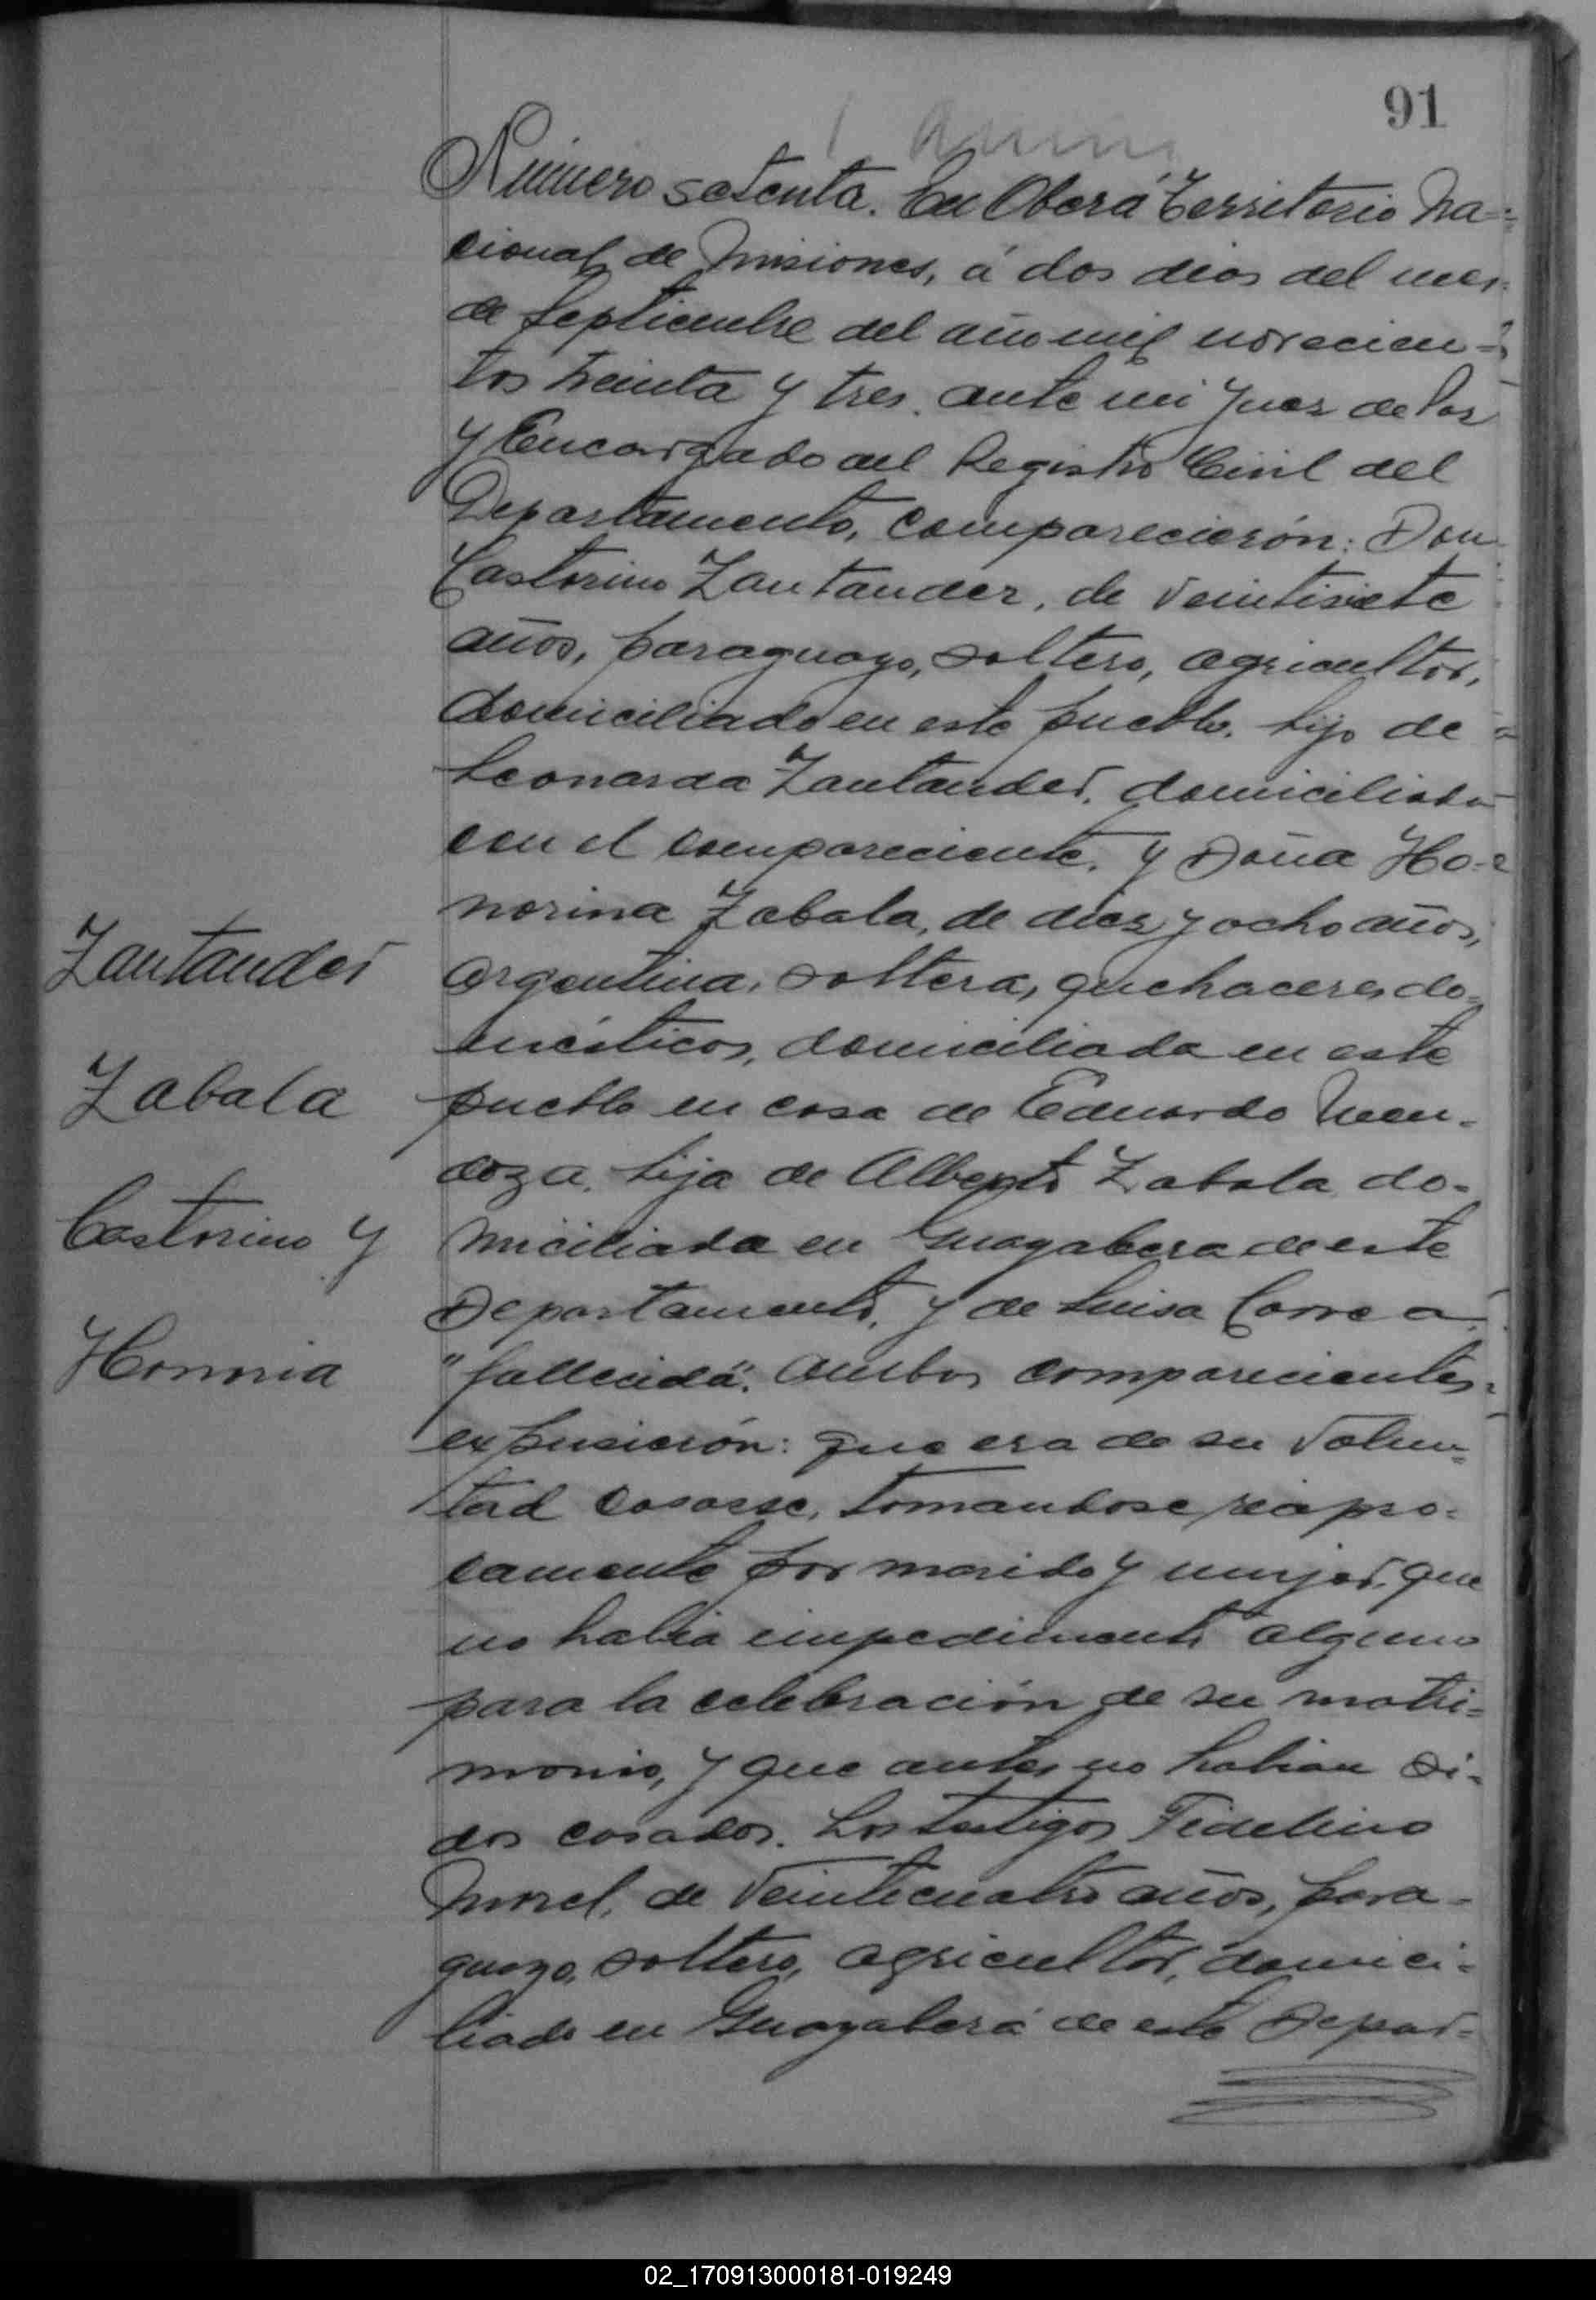 91
Número setenta. En Oberá Territorio Na=
cional de Misiones, á dos dias del mes
de Septiembre del año mil novecien=
tos treinta y tres. ante mi Juez de Paz
y Encargado del Registro Civil del
Departamento, comparecierón: Don
Castorino Zantander, de veintisiete
años, paraguayo, soltero, agricultor,
domiciliado en este pueblo. hijo de
Leonarda Zantander. domiciliada
con el compareciente. y Doña Ho=
norina Zabala, de diez y ocho años,
argentina, soltera, quehaceres do=
mésticos, domiciliada en este
pueblo en casa de Eduardo Men-
doza. hija de Alberto Zabala do-
miciliada en Guayabera de este
Departamento. y de Luisa Correa
"fallecida". Ambos comparecientes
expusierón: que era de su volun=
tad casarse, tomandose recipro=
camente por marido y mujer. que
no habia impedimento alguno
para la celebración de su matri=
monio, y que antes no habian si=
dos casados. Los testigos Fidelino
Morel, de veinticuatro años, para-
guayo, soltero, agricultor, domici=
liado en Guayaberá de este Depar=
Zantander
Zabala
Castorino y
02_170913000181-019249